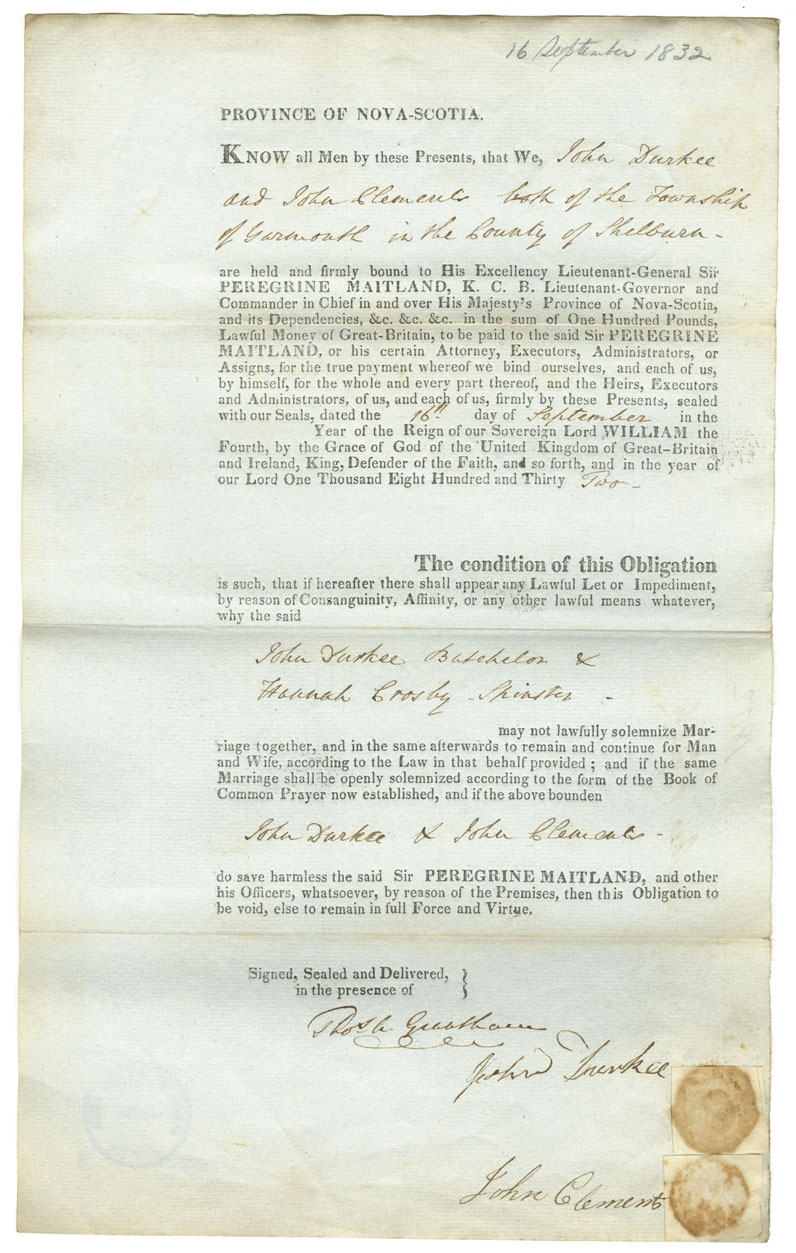 16 September 1832
PROVINCE OF NOVA-SCOTIA.
KNOW all Men by these Presents, that We, John Durkee
and John Clements both of the Township
of Yarmouth in the County of Shelburn -
are held and firmly bound to His Excellency Lieutenant-General Sir
PEREGRINE MAITLAND, K. C. B. Lieutenant-Governor and
Commander in Chief in and over His Majesty's Province of Nova-Scotia,
and its Dependencies, &c. &c. &c. in the sum of One Hundred Pounds,
Lawful Money of Great-Britain, to be paid to the said Sir PEREGRINE
MAITLAND, or his certain Attorney, Executors, Administrators, or
Assigns, for the true payment whereof we bind ourselves, and each of us,
by himself, for the whole and every part thereof, and the Heirs, Executors
and Administrators, of us, and each of us, firmly by these Presents, sealed
with our Seals, dated the 16th day of September in the
Year of the Reign of our Sovereign Lord WILLIAM the
Fourth, by the Grace of God of the United Kingdom of Great-Britain
and Ireland, King, Defender of the Faith, and so forth, and in the year of
our Lord One Thousand Eight Hundred and Thirty Two -
The condition of this Obligation
is such, that if hereafter there shall appear any Lawful Let or Impediment,
by reason of Consanguinity, Affinity, or any other lawful means whatever,
why the said
John Durkee Batchelor &
Hannah Crosby - Spinster -
may not lawfully solemnize Mar-
riage together, and in the same afterwards to remain and continue for Man
and Wife, according to the Law in that behalf provided ; and if the same
Marriage shall be openly solemnized according to the form of the Book of
Common Prayer now established, and if the above bounden
John Durkee & John Clements -
do save harmless the said Sir PEREGRINE MAITLAND, and other
his Officers, whatsoever, by reason of the Premises, then this Obligation to
be void, else to remain in full Force and Virtue.
Signed, Sealed and Delivered,
in the presence of
John Durkee
John Clements